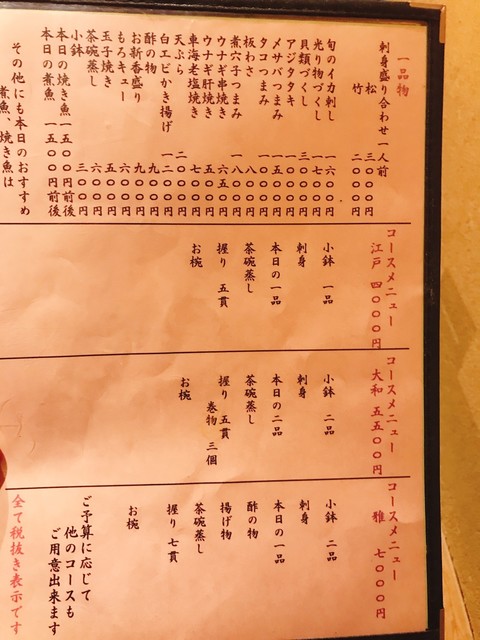 一品物
刺身盛り合わせ一人前
松 三〇〇〇円
竹 二〇〇〇円
旬のイカ刺し 一六〇〇円
光り物づくし 一七〇〇円
貝類づくし 三〇〇〇円
アジタタキ 一〇〇〇円
メサバつまみ 一五〇〇円
タコつまみ 一〇〇〇円
板わさ 八〇〇円
煮穴子つまみ 一八〇〇円
ウナギ串焼き 六五〇円
ウナギ肝焼き 五〇〇円
車海老塩焼き 七〇〇円
天ぷら 二〇〇〇円
白エビかき揚げ 一二〇〇円
酢の物 九〇〇円
お新香盛り 九〇〇円
もろキュー 六〇〇円
玉子焼き 五〇〇円
茶碗蒸し 六〇〇円
小鉢 三〇〇円
本日の焼き魚一五〇〇円前後
本日の煮魚 一五〇〇円前後
その他にも本日のおすすめ
煮魚、焼き魚は
コースメニュー
江戸 四〇〇〇円
小鉢 一品
刺身
本日の一品
茶碗蒸し
握り 五貫
お椀
コースメニュー
大和 五五〇〇円
小鉢 二品
刺身
本日の二品
茶碗蒸し
握り 五貫
巻物 三個
お椀
コースメニュー
雅 七〇〇〇円
小鉢 二品
刺身
本日の一品
酢の物
揚げ物
茶碗蒸し
握り 七貫
お椀
ご予算に応じて
他のコースも
ご用意出来ます
全て税抜き表示です